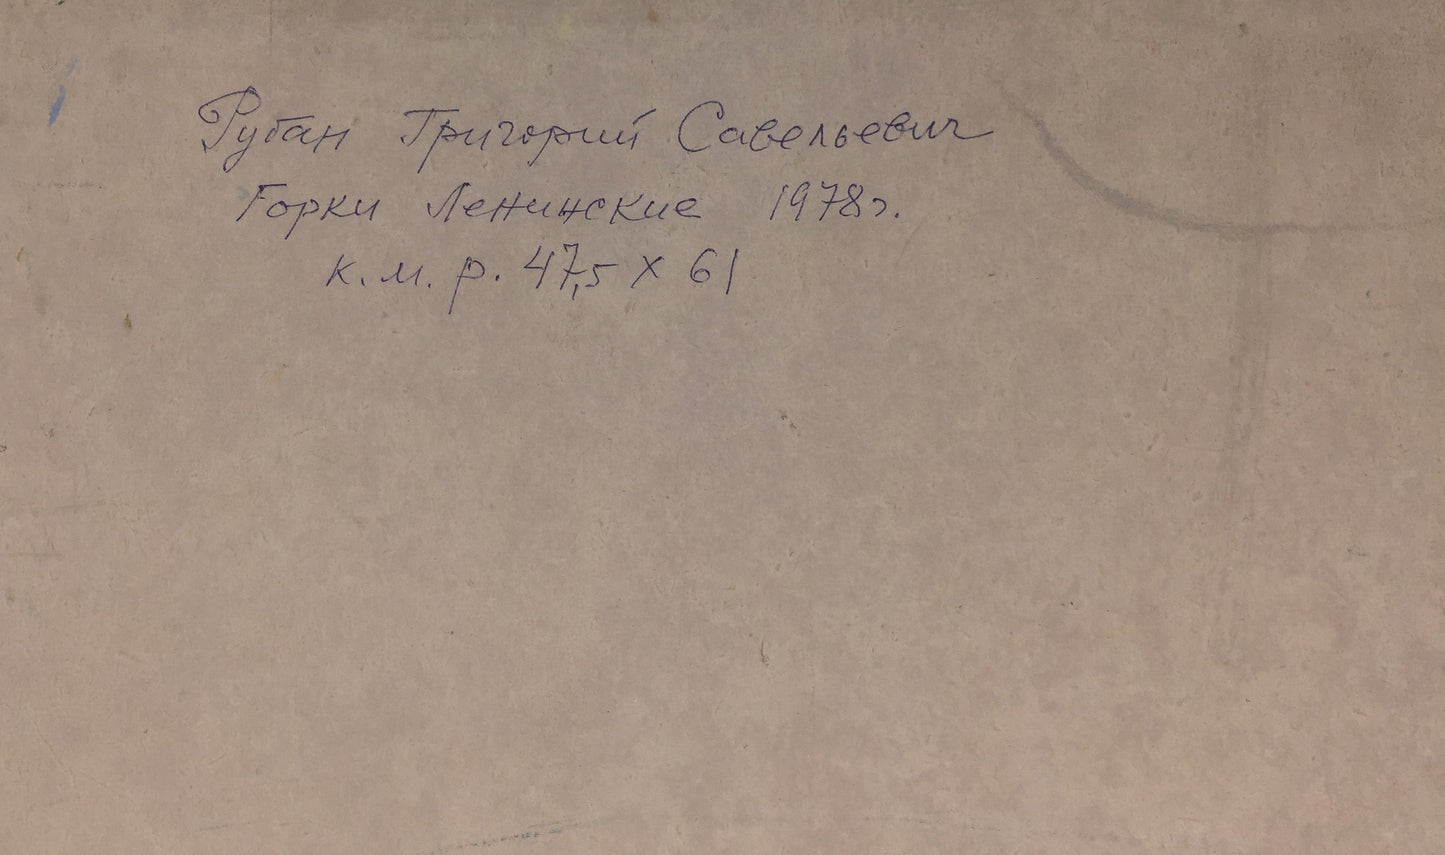 Рубан Григорий Савельевич
Горки Ленинские 1978г.
к.м. р. 47,5 х 61